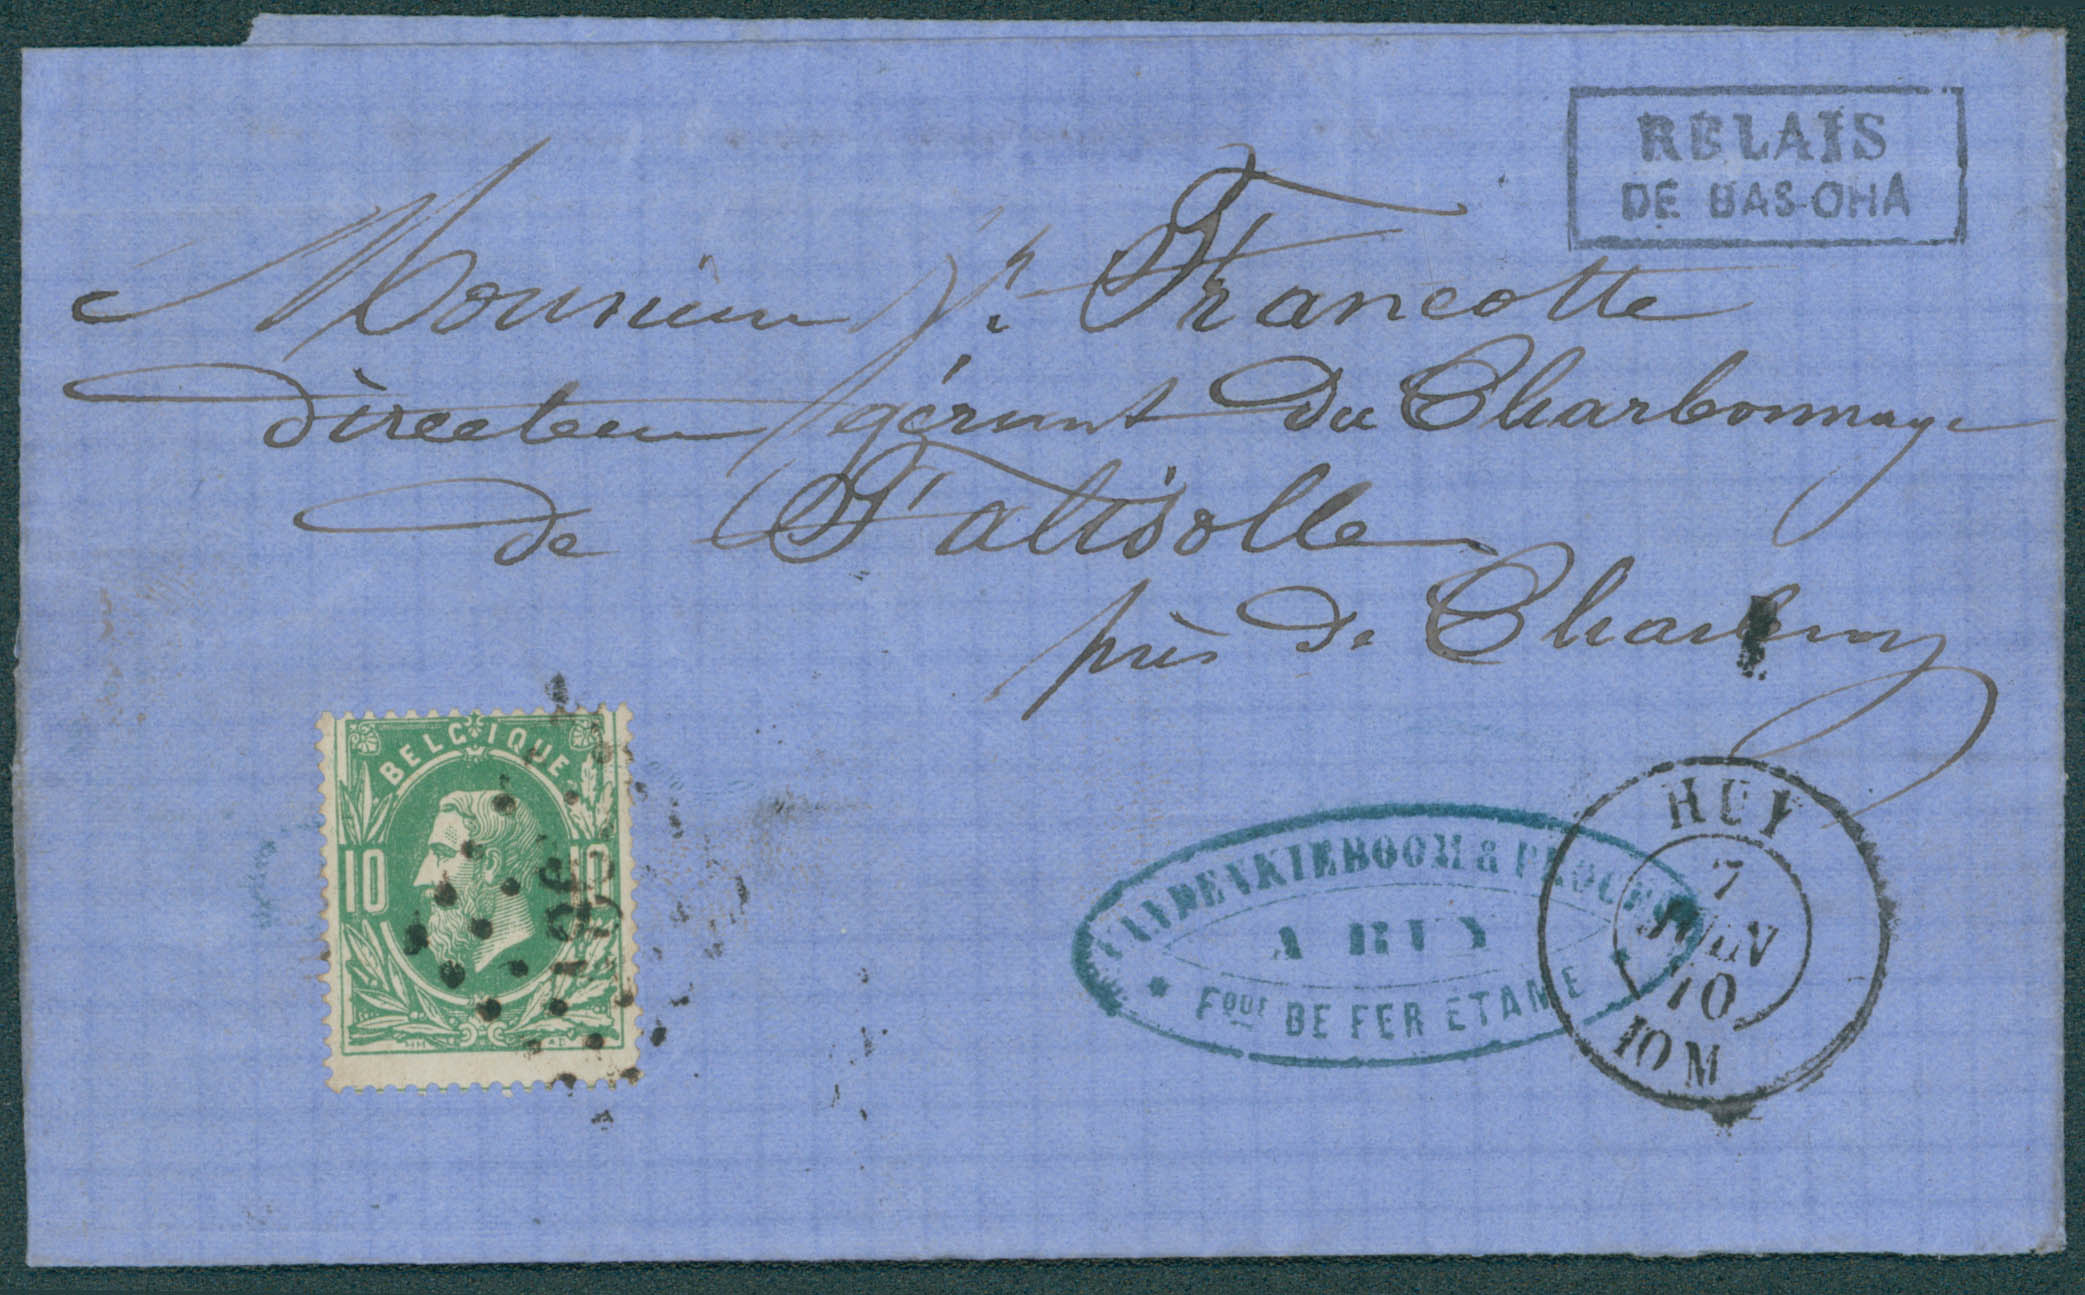 RELAIS
DE BAS-OHA
Monsieur Francotte
Directeur gérant du Charbonnage
de Faltisolle
près de Charleroy
BELGIQUE
10 10
VANDENKIEBOOM &
A HUY
Fque DE FER ÉTAMÉ
HUY
7
JUIN
70
10 M